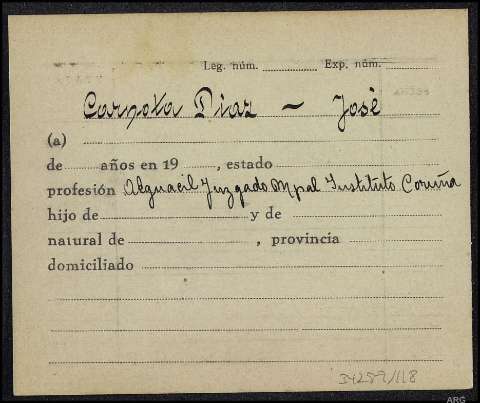 Leg. núm. Exp. núm.
Carnota Diaz — José
(a)
de años en 19 , estado
profesión Alguacil Juzgado Mpal Instituto Coruña
hijo de y de
natural de , provincia
domiciliado
34259/118
ARG